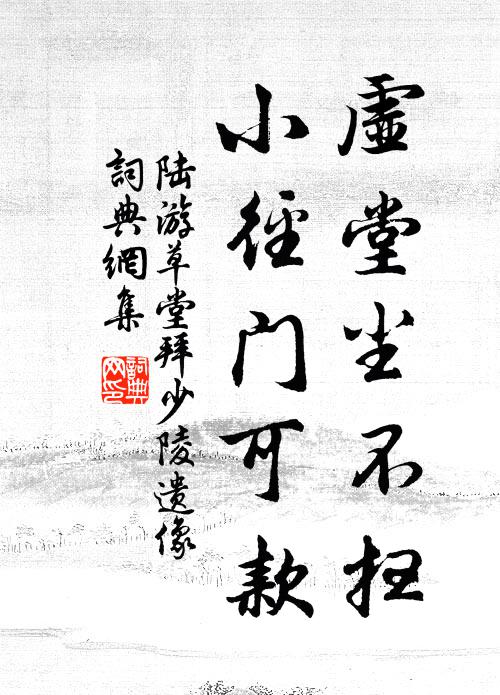 虛堂尘不扫
小徑门可款
陆游草堂拜少陵遗像
詞典網集
詞典
网印